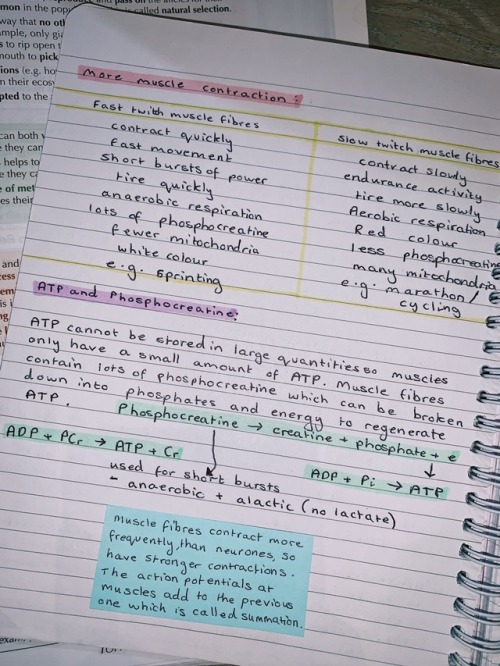 mon in the pop
called natural selection.
way that no oth
ample, only gia
s to rip open
mouth to pick
tions (e.g. how
n their ecos
pted to the
can both
e they can
helps to
e they ca
e of met
es their
and
cess
More muscle contraction:
Fast twith muscle fibres
contract quickly
fast movement
short bursts of power
tire quickly
anaerobic respiration
lots of phosphocreatine
fewer mitochondria
white colour
e.g. sprinting
Slow twitch muscle fibres
contract slowly
endurance activity
tire more slowly
Aerobic respiration
Red colour
less phosphocreatine
many mitochondria
e.g. marathon/
cycling
ATP and Phosphocreatine:
ATP cannot be stored in large quantities so muscles
only have a small amount of ATP. Muscle fibres
contain lots of phosphocreatine which can be broken
down into phosphates and energy to regenerate
ATP.
Phosphocreatine → creatine + phosphate + e
ADP + PCr → ATP + Cr
ADP + Pi → ATP
used for short bursts
- anaerobic + alactic (no lactate)
Muscle fibres contract more
frequently, than neurones, so
have stronger contractions.
The action potentials at
muscles add to the previous
one which is called summation.